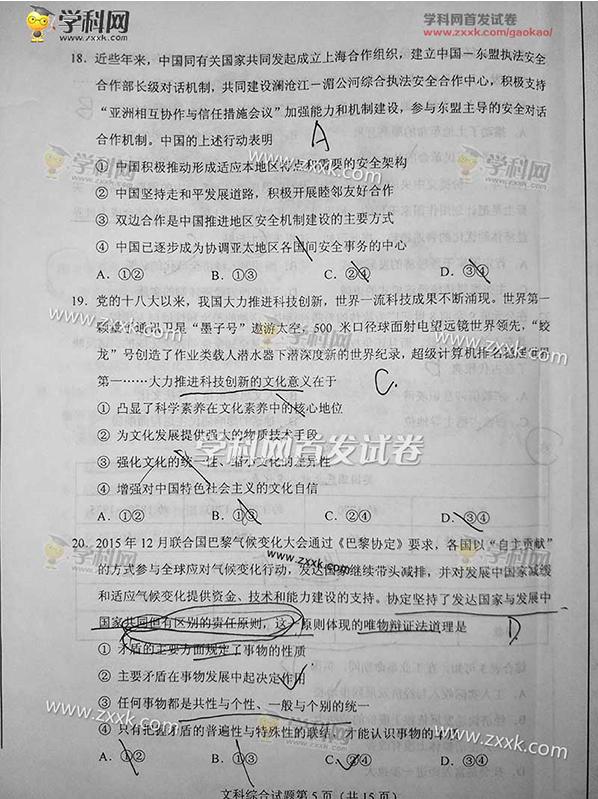 学科网
www.zxxk.com
学科网首发试卷
www.zxxk.com/gaokao/
18. 近些年来，中国同有关国家共同发起成立上海合作组织，建立中国—东盟执法安全
合作部长级对话机制，共同建设澜沧江—湄公河综合执法安全合作中心，积极支持
“亚洲相互协作与信任措施会议”加强能力和机制建设，参与东盟主导的安全对话
合作机制。中国的上述行动表明
A
① 中国积极推动形成适应本地区特点和需要的安全架构
② 中国坚持走和平发展道路，积极开展睦邻友好合作
③ 双边合作是中国推进地区安全机制建设的主要方式
④ 中国已逐步成为协调亚太地区各国间安全事务的中心
A. ①② B. ①③ C. ②④ D. ③④
19. 党的十八大以来，我国大力推进科技创新，世界一流科技成果不断涌现。世界第一
颗量子通讯卫星“墨子号”遨游太空，500 米口径球面射电望远镜世界领先，“蛟
龙”号创造了作业类载人潜水器下潜深度新的世界纪录，超级计算机排名稳居世界
第一……大力推进科技创新的文化意义在于
C.
① 凸显了科学素养在文化素养中的核心地位
② 为文化发展提供强大的物质技术手段
③ 强化文化的统一性、缩小文化的差异性
④ 增强对中国特色社会主义的文化自信
学科网首发试卷
A. ①② B. ①③ C. ②④ D. ③④
20. 2015 年 12 月联合国巴黎气候变化大会通过《巴黎协定》要求，各国以“自主贡献”
的方式参与全球应对气候变化行动，发达国家继续带头减排，并对发展中国家减缓
和适应气候变化提供资金、技术和能力建设的支持。协定坚持了发达国家与发展中
国家共同但有区别的责任原则，这一原则体现的唯物辩证法道理是
D
① 矛盾的主要方面规定了事物的性质
② 主要矛盾在事物发展中起决定作用
③ 任何事物都是共性与个性、一般与个别的统一
④ 只有把握矛盾的普遍性与特殊性的联结，才能认识事物的
A. ①② B. ①③ C. ②④ D. ③④
文科综合试题第 5 页（共 15 页）